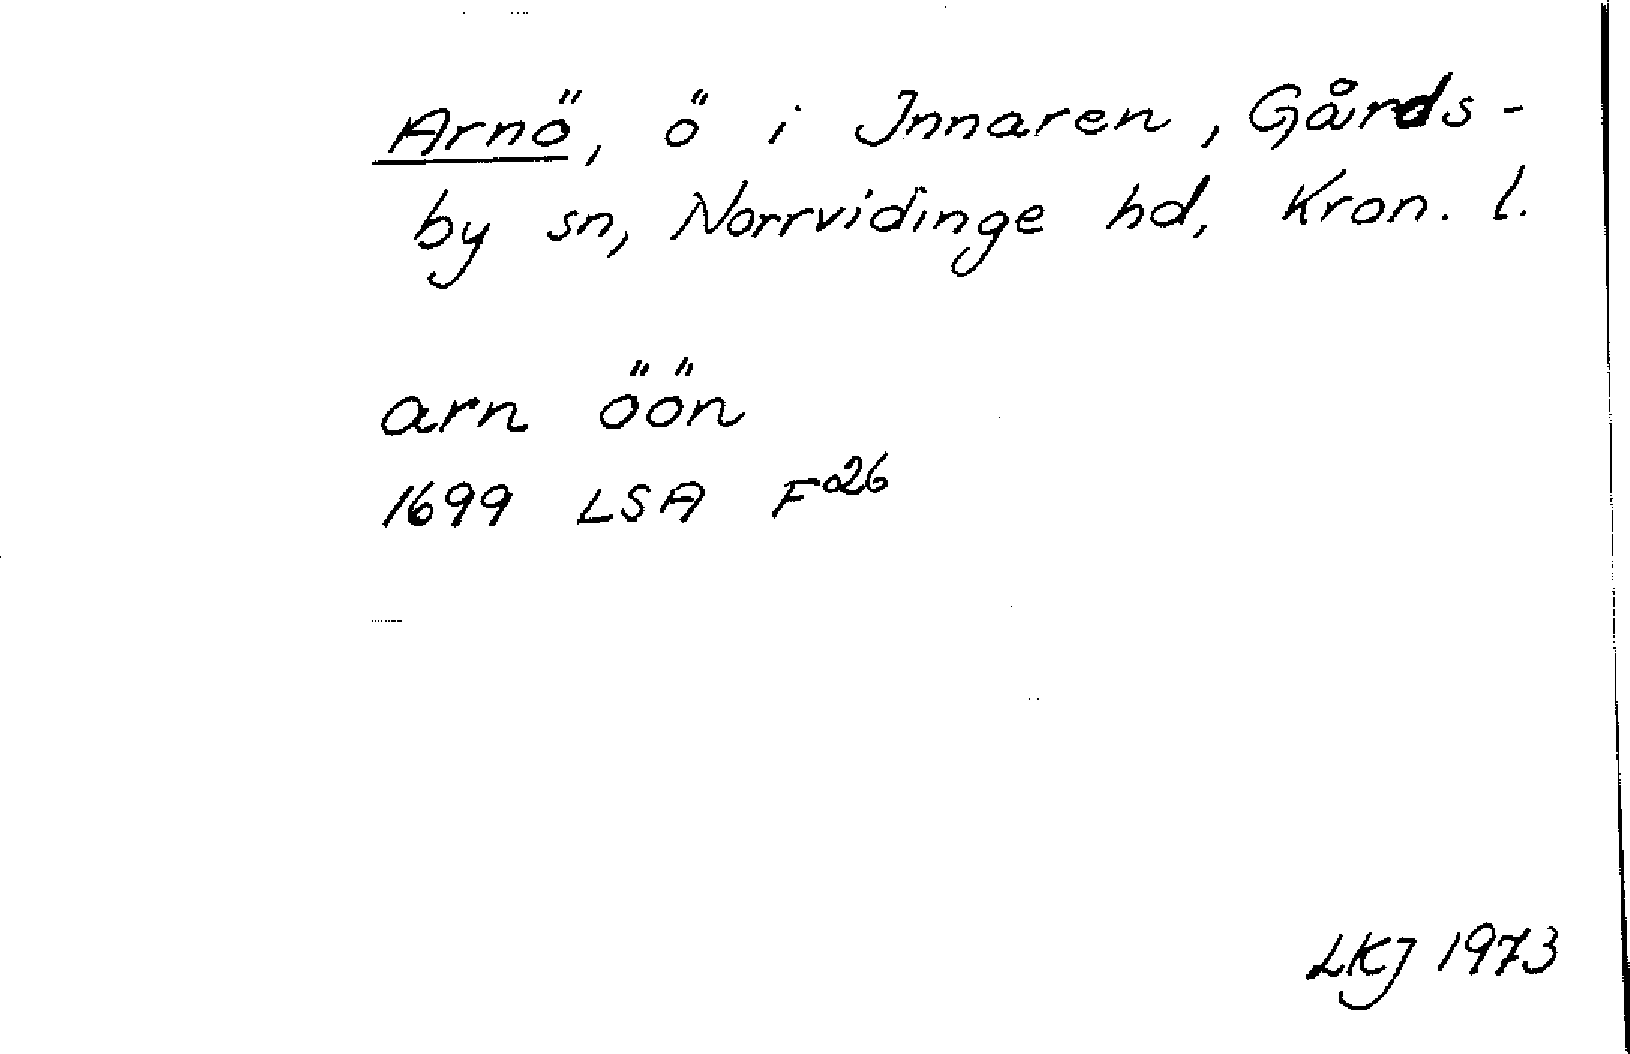 Arnö, ö i Innaren, Gårds-
by sn, Norrvidinge hd, Kron. l.
arn öön
1699 LSA F26
LKJ 1973